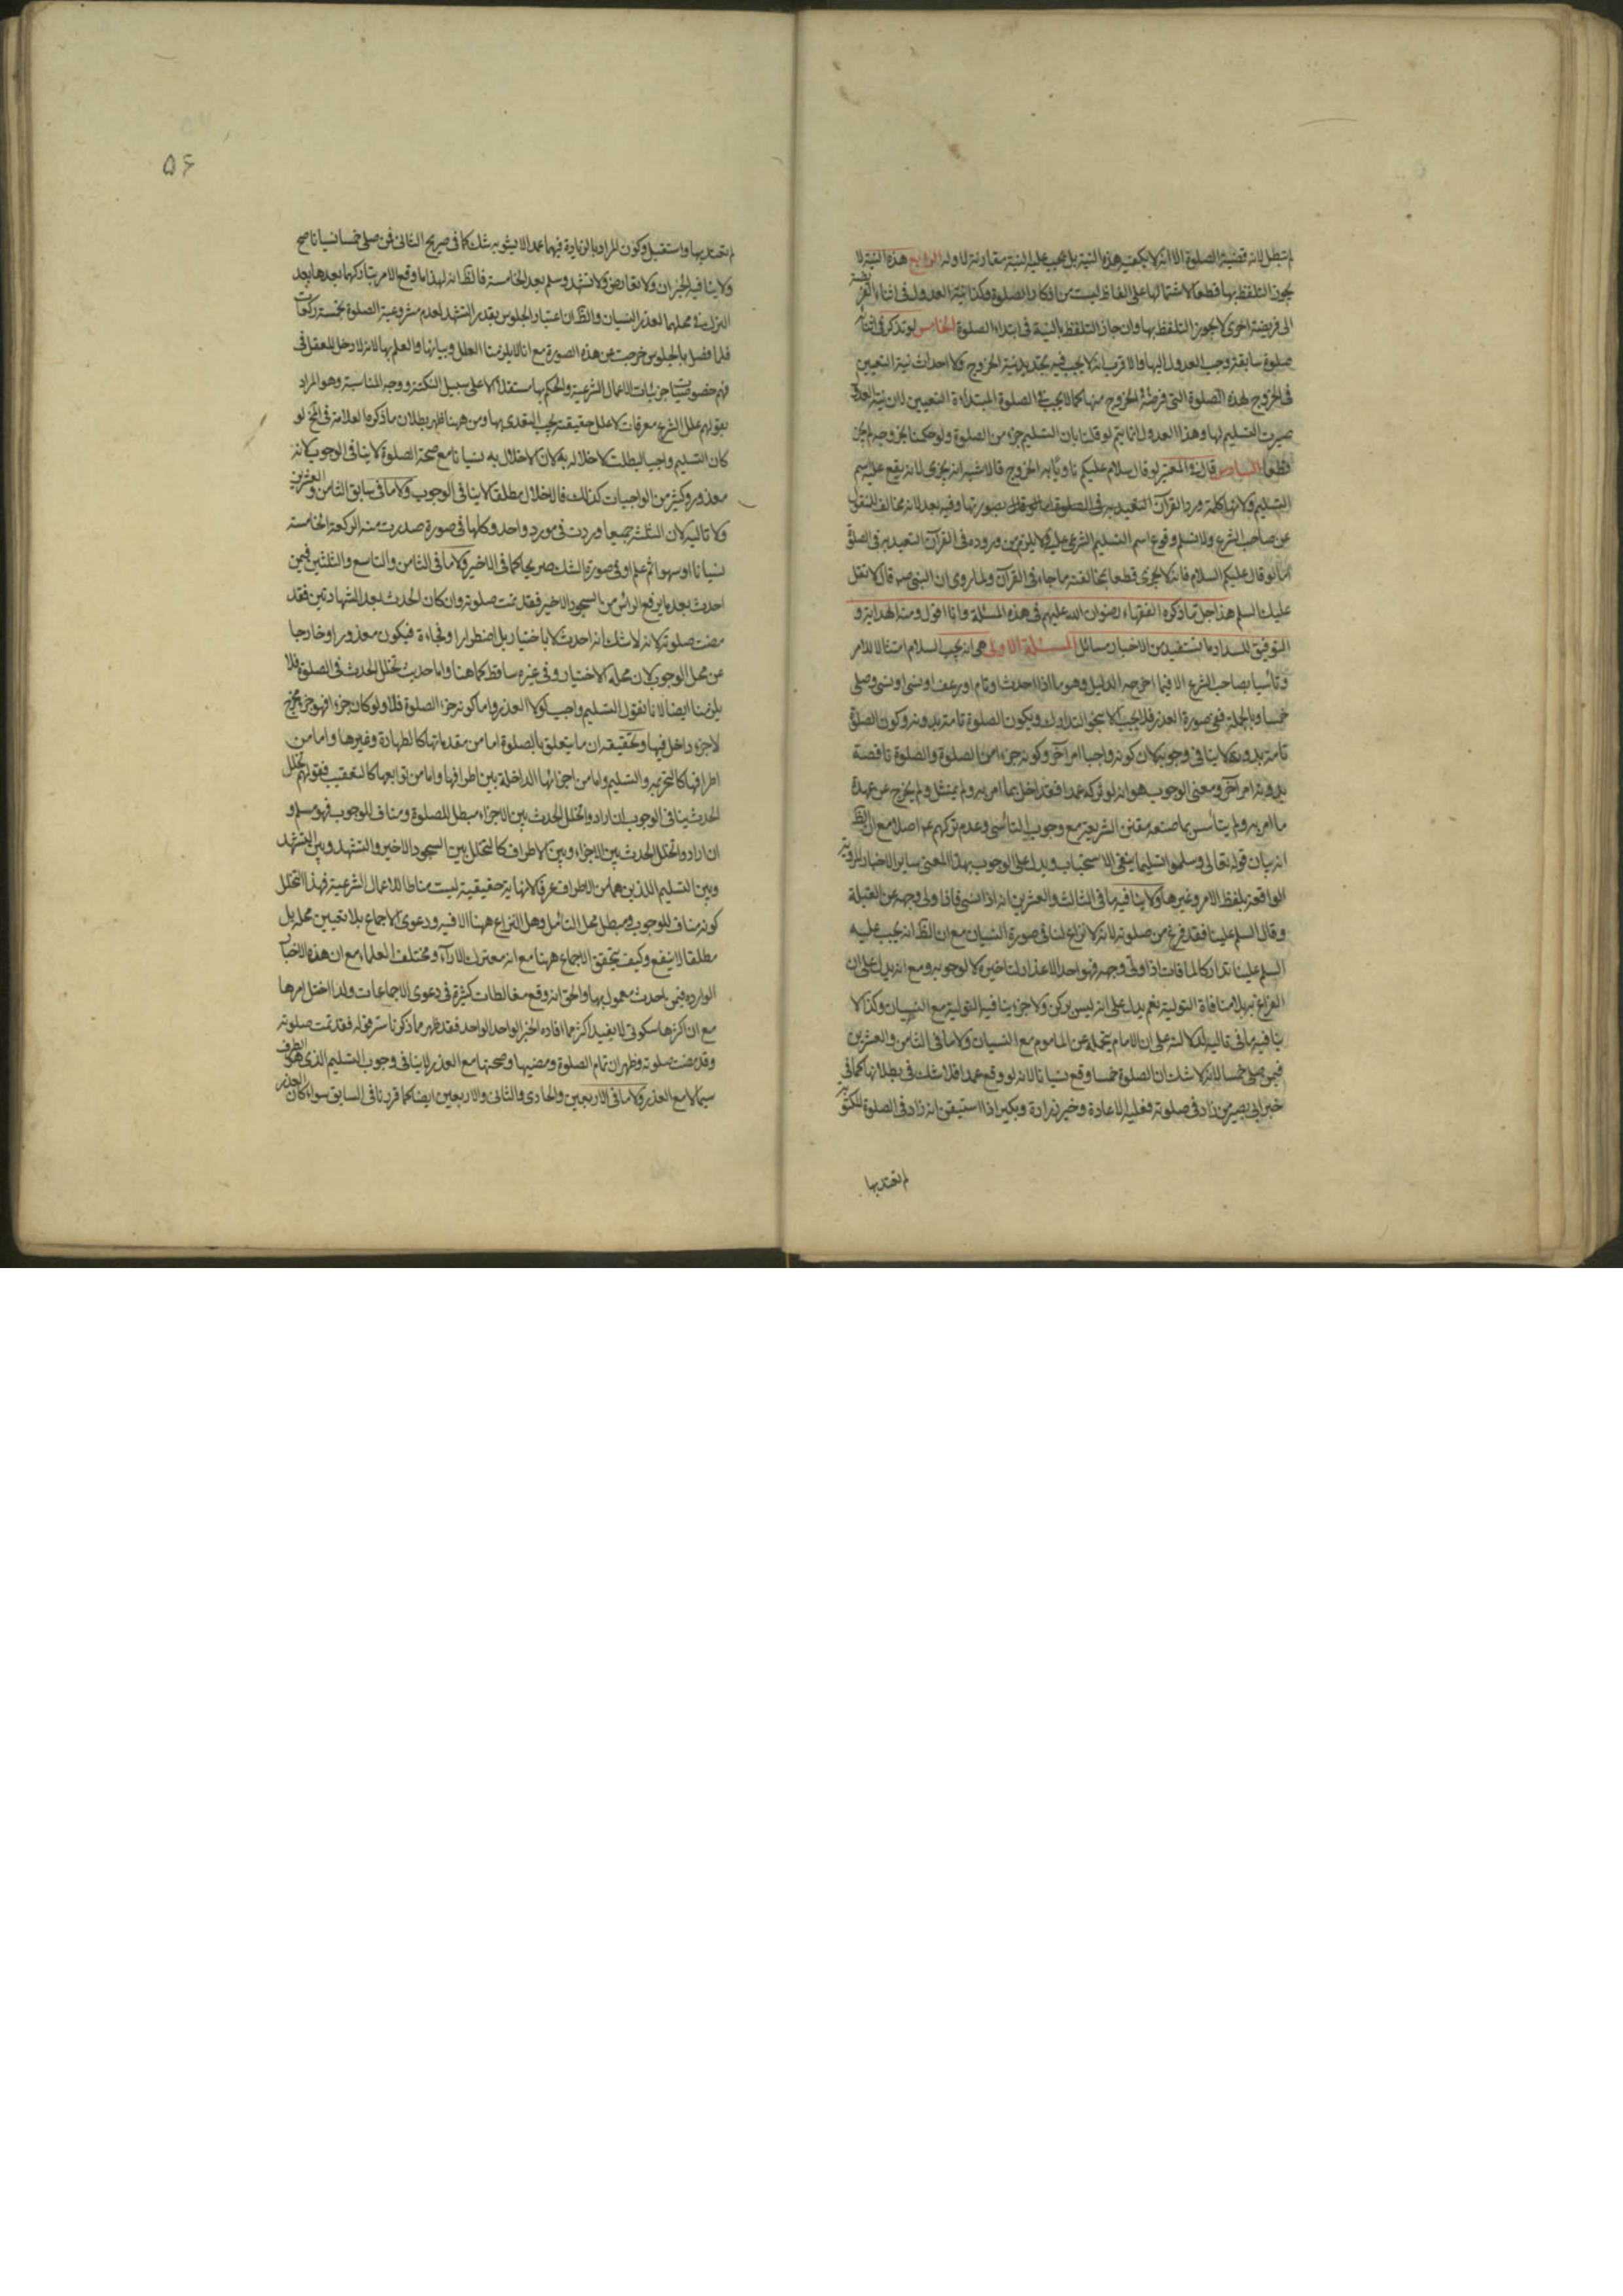 لم تبطل لانه قضية الصلوة الا انه لا يكفيه هذه النية بل يجب عليه نية مقارنة لاوله الرابع هذه النية لا
يجوز التلفظ بها قطعا لاشتمالها على الفاظ ليست من اذكار الصلوة وكذا نية العدول في اثناء الفريضة
الى فريضة اخرى لا يجوز التلفظ بها وان جاز التلفظ بالنية في ابتداء الصلوة الخامس لو تذكر في اثنائه
صلوة سابقة وجب العدول اليها والاقرب انه لا يجب فيه تجديد نية الخروج ولا احداث نية التعيين
في الخروج لهذه الصلوة التي فرضه الخروج منها كما لا يجب في الصلوة المبتداءة التعيين لان نية العدول
صيرت التسليم لها وهذا العدول انما يتم لو قلنا بان التسليم جزء من الصلوة ولو حكمنا بخروجه لم يجز
قطعا السادس قال في المعتبر لو قال سلام عليكم ناويا به الخروج فالاشبه انه يجزى لانه يقع عليه اسم
التسليم ولانها كلمة ورد القرآن بصورتها وفيه بعد لانه مخالف للمنقول
عن صاحب الشرع ولا نسلم وقوع اسم التسليم الشرعي عليه ولا يلزم من وروده في القرآن التعبد به في الصلوة
اما لو قال عليكم السلام فانه لا يجزى قطعا بمخالفته ما جاء في القرآن ولما روى ان النبي ص قال لا تقل
عليك السلم هذا جل ما ذكره الفقهاء رضوان الله عليهم في هذه المسئلة وانا اقول ومنه الهداية و
التوفيق للسداد ما نستفيد من الاخبار مسائل المسئلة الاولى هي انه يجب السلام امتثالا للامر
وتأسيا بصاحب الشرع الا فيما اخرجه الدليل وهو ما اذا احدث او نام او رعف او نسى وصلى
خمسا وبالجملة ففي صورة العذر فلا يجب التدارك ويكون الصلوة تامة بدونه وكون الصلوة
تامة بدونه لا ينافي وجوبه لان كونه واجبا امر آخر وكونه جزء من الصلوة والصلوة ناقصة
بدونه امر آخر ومعنى الوجوب هو انه لو تركه عمدا فقد اخل بما امر به ولم يمتثل ولم يخرج عن عهدة
ما امر به ولم يتأسس بما صنعه مقنن الشريعة مع وجوب التأسي وعدم تركهم ع اصلا مع ان الظ
انه بيان قوله تعالى وسلموا تسليما ينفي الاستحباب ويدل على الوجوب بهذا المعنى ساير الاخبار المروية
الواقعة بلفظ الامر وغيرها ولا ينافيه ما في الثالث والعشرين انه اذا نسي فاذا ولى وجهه عن القبلة
وقال السلم علينا فقد فرغ من صلوته لانه لا نزاع لنا في صورة النسيان مع ان الظ انه يجب عليه
السلم علينا تداركا لما فات اذا ولى وجهه فهو احد الاعذار لتاخيره لا لوجوبه ومع انه يدل على ان
الفراغ به بلا منافاة التولية نعم يدل على انه ليس بركن ولا جزء ينافيه التولية مع النسيان وكذا لا
ينافيه ما في تاليه لدلالته على ان الامام يتحمله عن الماموم مع النسيان ولا ما في الثامن والعشرين
فيمن صلى خمسا لانه لا شك ان الصلوة خمسا وقع نسيانا لانه لو وقع عمدا فلا شك في بطلانها كما في
خبر ابي بصير من زاد في صلوته فعليه الاعادة وخبر زرارة وبكير اذا استيقن انه زاد في الصلوة المكتوبة
لم تعتد بها
۵۶
لم تعتد بها واستقبل وكون المراد بالزيادة فيهما عمدا لا يشوبه شك كما في صريح الثاني فمن صلى خمسا نسيانا صح
ولا ينافيه الخبران ولا تعارض ولا تشهد وسلم بعد الخامسة فالظ انه لهذا ما وقع الامر بتاركهما بعدها بعد
النزل في محلهما لعذر النسيان والظ ان اعتبار الجلوس بقدر التشهد لعدم مشروعية الصلوة بخمسة ركعات
فلما فصل بالجلوس خرجت عن هذه الصورة مع انا لا يلزمنا العلل وبيانها والعلم بها لانه لا دخل للعقل في
فهم خصوصيات جزئيات الاعمال الشرعية والحكم بها مستقلا الا على سبيل النكتة ووجه المناسبة وهو المراد
بقولهم علل الشرع معرفات لا علل حقيقية يجب التعدى بها ومن ههنا ظهر بطلان ما ذكره العلامة في لو
كان التسليم واجبا لبطلت لاخلاله به لان الاخلال به نسيانا مع صحة الصلوة لا ينافي الوجوب لانه
معذور وكثير من الواجبات كذلك فالاخلال مطلقا لا ينافي الوجوب ولا ما في سابق الثامن والعشرين
ولا تاليه لان الثلثة جميعا وردت في مورد واحد وكلها في صورة صدرت منه الركعة الخامسة
نسيانا او سهوا ثم علم او في صورة الشك صريحا كما في الاخير ولا ما في الثامن والتاسع والثلثين فيمن
احدث بعد ما يرفع الرأس من السجود الاخير فقد تمت صلوته وان كان الحدث بعد الشهادتين فقد
مضت صلوته لانه لا شك انه احدث لا باختيار بل اضطرارا وفجاءة فيكون معذورا وخارجا
عن محل الوجوب لان محله الاختيار وفي غيره ساقط كما هنا واما حديث تخلل الحدث في الصلوة فلا
يلزمنا ايضا لانا نقول التسليم واجب لولا العذر واما كونه جزء الصلوة فلا ولو كان جزء فهو جزء مخرج
لا جزء داخل فيها وتحقيقه ان ما يتعلق بالصلوة اما من مقدماتها كالطهارة وغيرها واما من
اطرافها كالتحريمه والتسليم واما من اجزائها الداخلة بين اطرافها واما من توابعها كالتعقيب فقولهم تخلل
الحدث ينافي الوجوب ان ارادوا تخلل الحدث بين الاجزاء مبطل للصلوة ومناف للوجوب فهو مسلم و
ان ارادوا تخلل الحدث بين الاجزاء وبين الاطراف كالتخلل بين السجود الاخير والتشهد وبين التشهد
وبين التسليم اللذين هما من الاطراف عرفا لانهاية حقيقية ليست مناطا للاعمال الشرعية فهذا التخلل
كونه مناف للوجوب ومبطل محل التأمل وهل النزاع ههنا الا فيه ودعوى الاجماع بلا تعيين محله بل
مطلقا لا ينفع وكيف يتحقق الاجماع ههنا مع انه معترك الاراء ومختلف العلماء مع ان هذه الاخبار
الوارده فيمن احدث معمول بها والحق انه وقع مغالطات كثيرة في دعوى الاجماعات ولذا اختل امرها
مع ان اكثرها سكوتى لا يفيد اكثر مما افاده الخبر الواحد الواحد فقد ظهر مما ذكرنا سر قوله فقد تمت صلوته
وقد مضت صلوته وظهر ان تمام الصلوة ومضيها وصحتها مع العذر لا ينافي وجوب التسليم الذي هو الطرف
سيما مع العذر ولا ما في الاربعين والحادى والثاني والاربعين ايضا كما قررنا في السابق سواء كان العذر